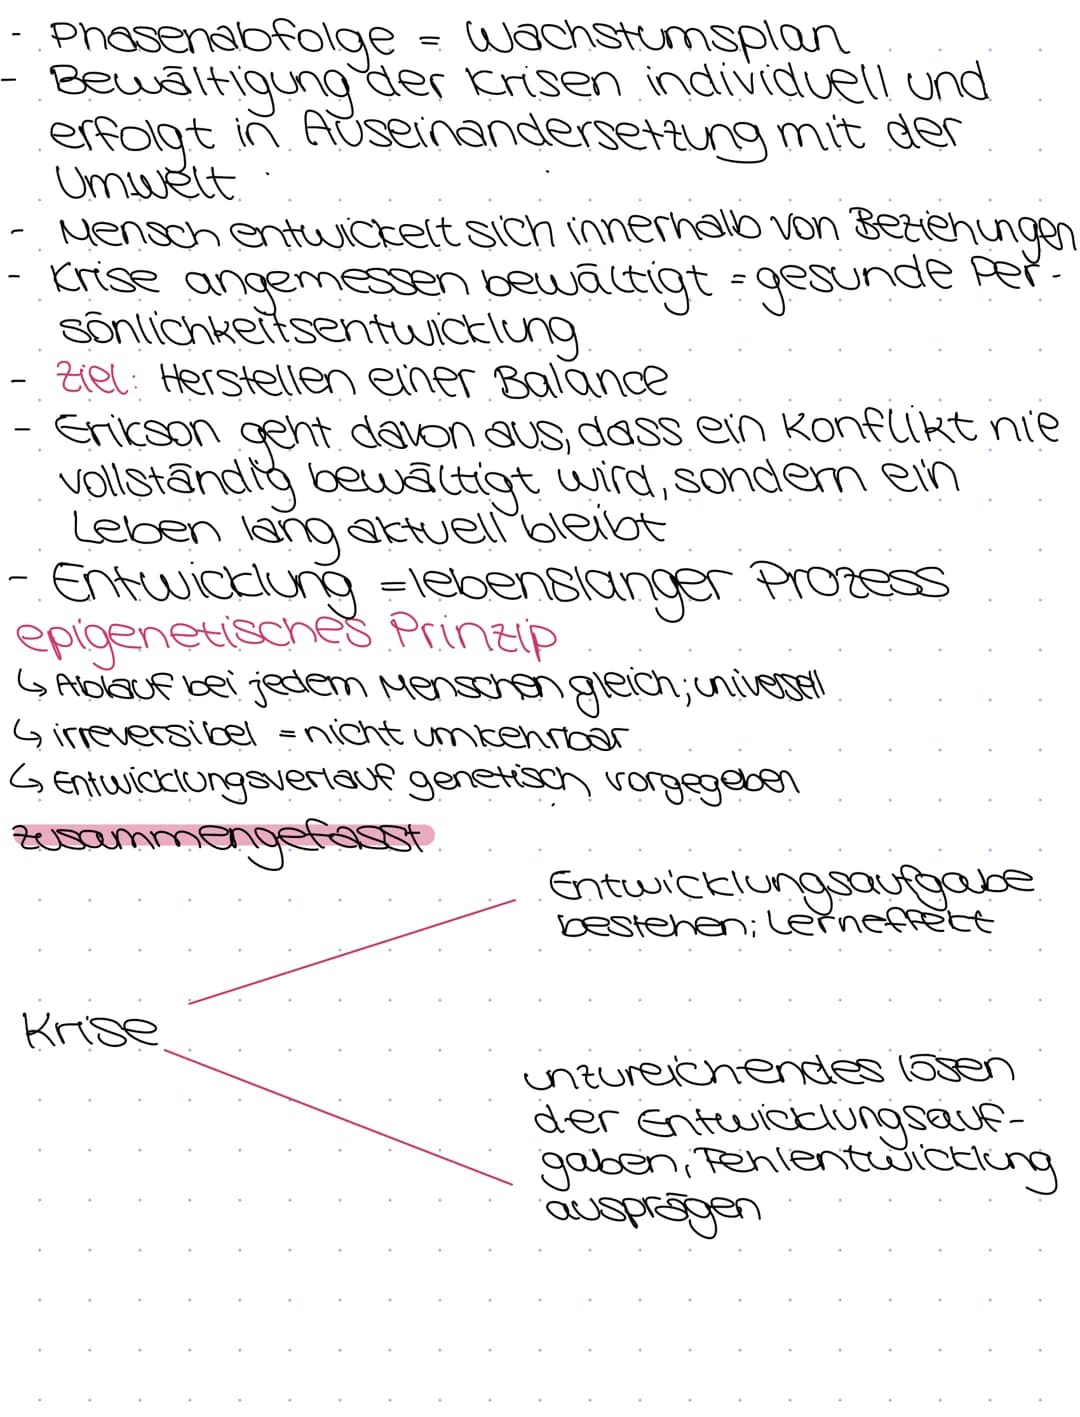 - Phasenabfolge = Wachstumsplan
- Bewältigung der Krisen individuell und
erfolgt in Auseinandersetzung mit der
Umwelt
- Mensch entwickelt sich innerhalb von Beziehungen
- Krise angemessen bewältigt = gesunde Per-
sönlichkeitsentwicklung
- Ziel: Herstellen einer Balance
- Erikson geht davon aus, dass ein Konflikt nie
vollständig bewältigt wird, sondern ein
Leben lang aktuell bleibt
- Entwicklung = lebenslanger Prozess
epigenetisches Prinzip
↳ Ablauf bei jedem Menschen gleich; univesell
↳ irreversibel = nicht umkehrbar
↳ Entwicklungsverlauf genetisch vorgegeben
zusammengefasst
Entwicklungsaufgabe
bestehen; Lerneffekt
Krise
unzureichendes lösen
der Entwicklungsauf-
gaben, Fehlentwicklung
ausprägen